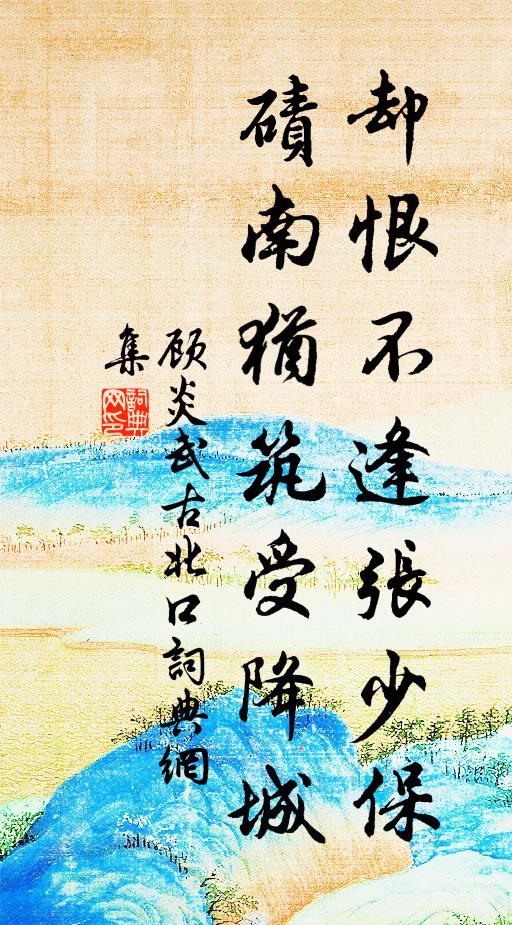 却恨不逢張少保
磧南猶筑受降城
顾炎武古北口詞典網
集
詞典
网印